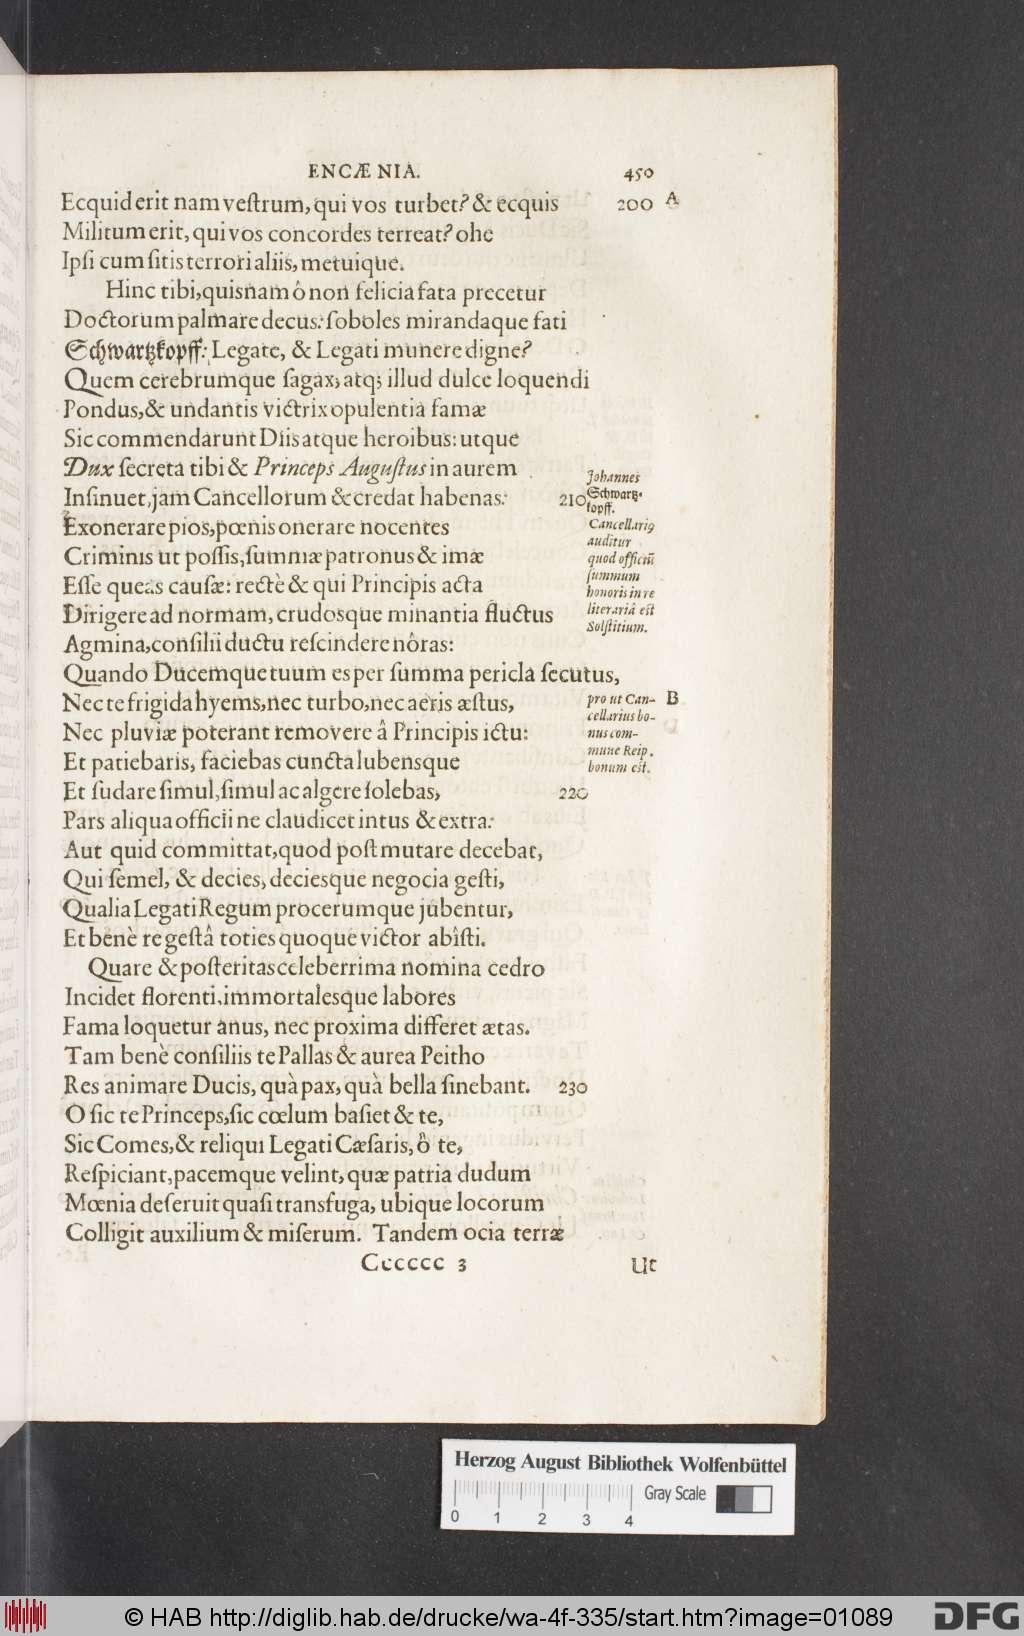 ENCÆNIA. 450
Ecquid erit nam veſtrum, qui vos turbet? & ecquis 200 A
Militum erit, qui vos concordes terreat? ohe
Ipſi cum ſitis terrori aliis, metuique.
Hinc tibi, quisnam ô non felicia fata precetur
Doctorum palmare decus: ſoboles mirandaque fati
Schwartzkopff: Legate, & Legati munere digne?
Quem cerebrumque ſagax, atq; illud dulce loquendi
Pondus, & undantis victrix opulentia famæ
Sic commendarunt Diis atque heroibus: utque
Dux ſecreta tibi & Princeps Auguſtus in aurem
Inſinuet, jam Cancellorum & credat habenas: 210
Exonerare pios, pœnis onerare nocentes
Criminis ut poſſis, ſummæ patronus & imæ
Eſſe queas cauſæ: rectè & qui Principis acta
Dirigere ad normam, crudosque minantia fluctus
Agmina, conſilii ductu reſcindere nôras:
Quando Ducemque tuum es per ſumma pericla ſecutus,
Nec te frigida hyems, nec turbo, nec aëris æſtus,
Nec pluviæ poterant removere â Principis ictu:
Et patiebaris, faciebas cuncta lubensque
Et ſudare ſimul, ſimul ac algere ſolebas, 220
Pars aliqua officii ne claudicet intus & extra:
Aut quid committat, quod poſt mutare decebat,
Qui ſemel, & decies, deciesque negocia geſti,
Qualia Legati Regum procerumque jubentur,
Et benè re geſtâ toties quoque victor abîſti.
Quare & poſteritas celeberrima nomina cedro
Incidet florenti, immortalesque labores
Fama loquetur anus, nec proxima differet ætas.
Tam benè conſiliis te Pallas & aurea Peitho
Res animare Ducis, quà pax, quà bella ſinebant. 230
O ſic te Princeps, ſic cœlum baſiet & te,
Sic Comes, & reliqui Legati Cæſaris, ô te,
Reſpiciant, pacemque velint, quæ patria dudum
Mœnia deſeruit quaſi transfuga, ubique locorum
Colligit auxilium & miſerum. Tandem ocia terræ
Cccccc 3 Ut
Johannes
Schwartz-
kopff.
Cancellariꝰ
auditur
quod officiū
ſummum
honoris in re
literariâ eſt
Solſtitium.
pro ut Can- B
cellarius bo-
nus com-
mune Reip.
bonum eſt.
Herzog August Bibliothek Wolfenbüttel
Gray Scale
0 1 2 3 4
© HAB http://diglib.hab.de/drucke/wa-4f-335/start.htm?image=01089
DFG